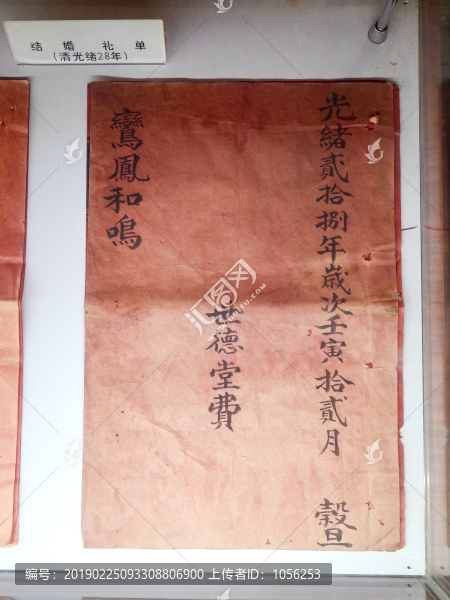 结婚礼单
(清光绪28年)
光緒貳拾捌年歲次壬寅拾貳月 穀旦
世德堂費
鸞鳳和鳴
汇图网
编号：20190225093308806900 上传者ID：1056253